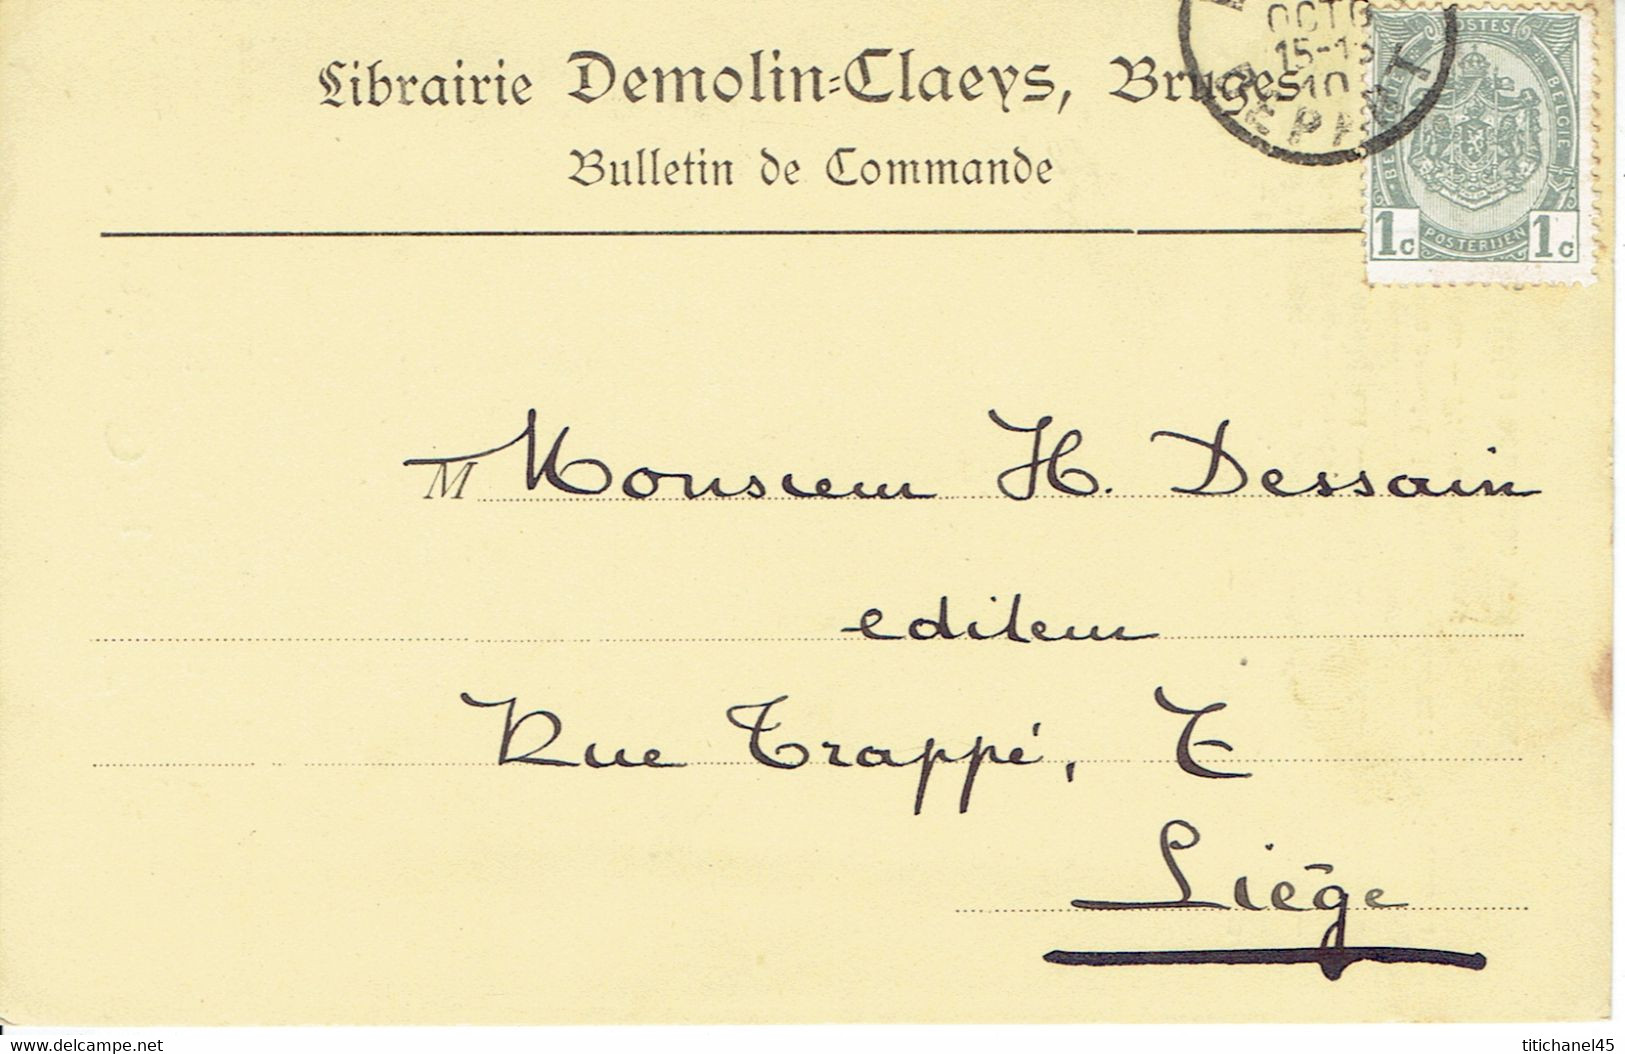 Librairie Demolin-Claeys, Bruges
Bulletin de Commande
OCTO
15-1
10
DEPART
POSTES
BELGIE
POSTERIJEN
1c 1c
M Monsieur H. Dessain
editeur
Rue Trappé, 7
Liége
www.delcampe.net
titichanel45